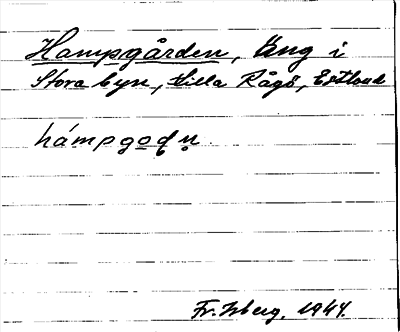 Hampgården, äng i
Stora byn, Lilla Rågö, Estland
hámpgo̲ɖn̥
Fr. Isberg, 1947.